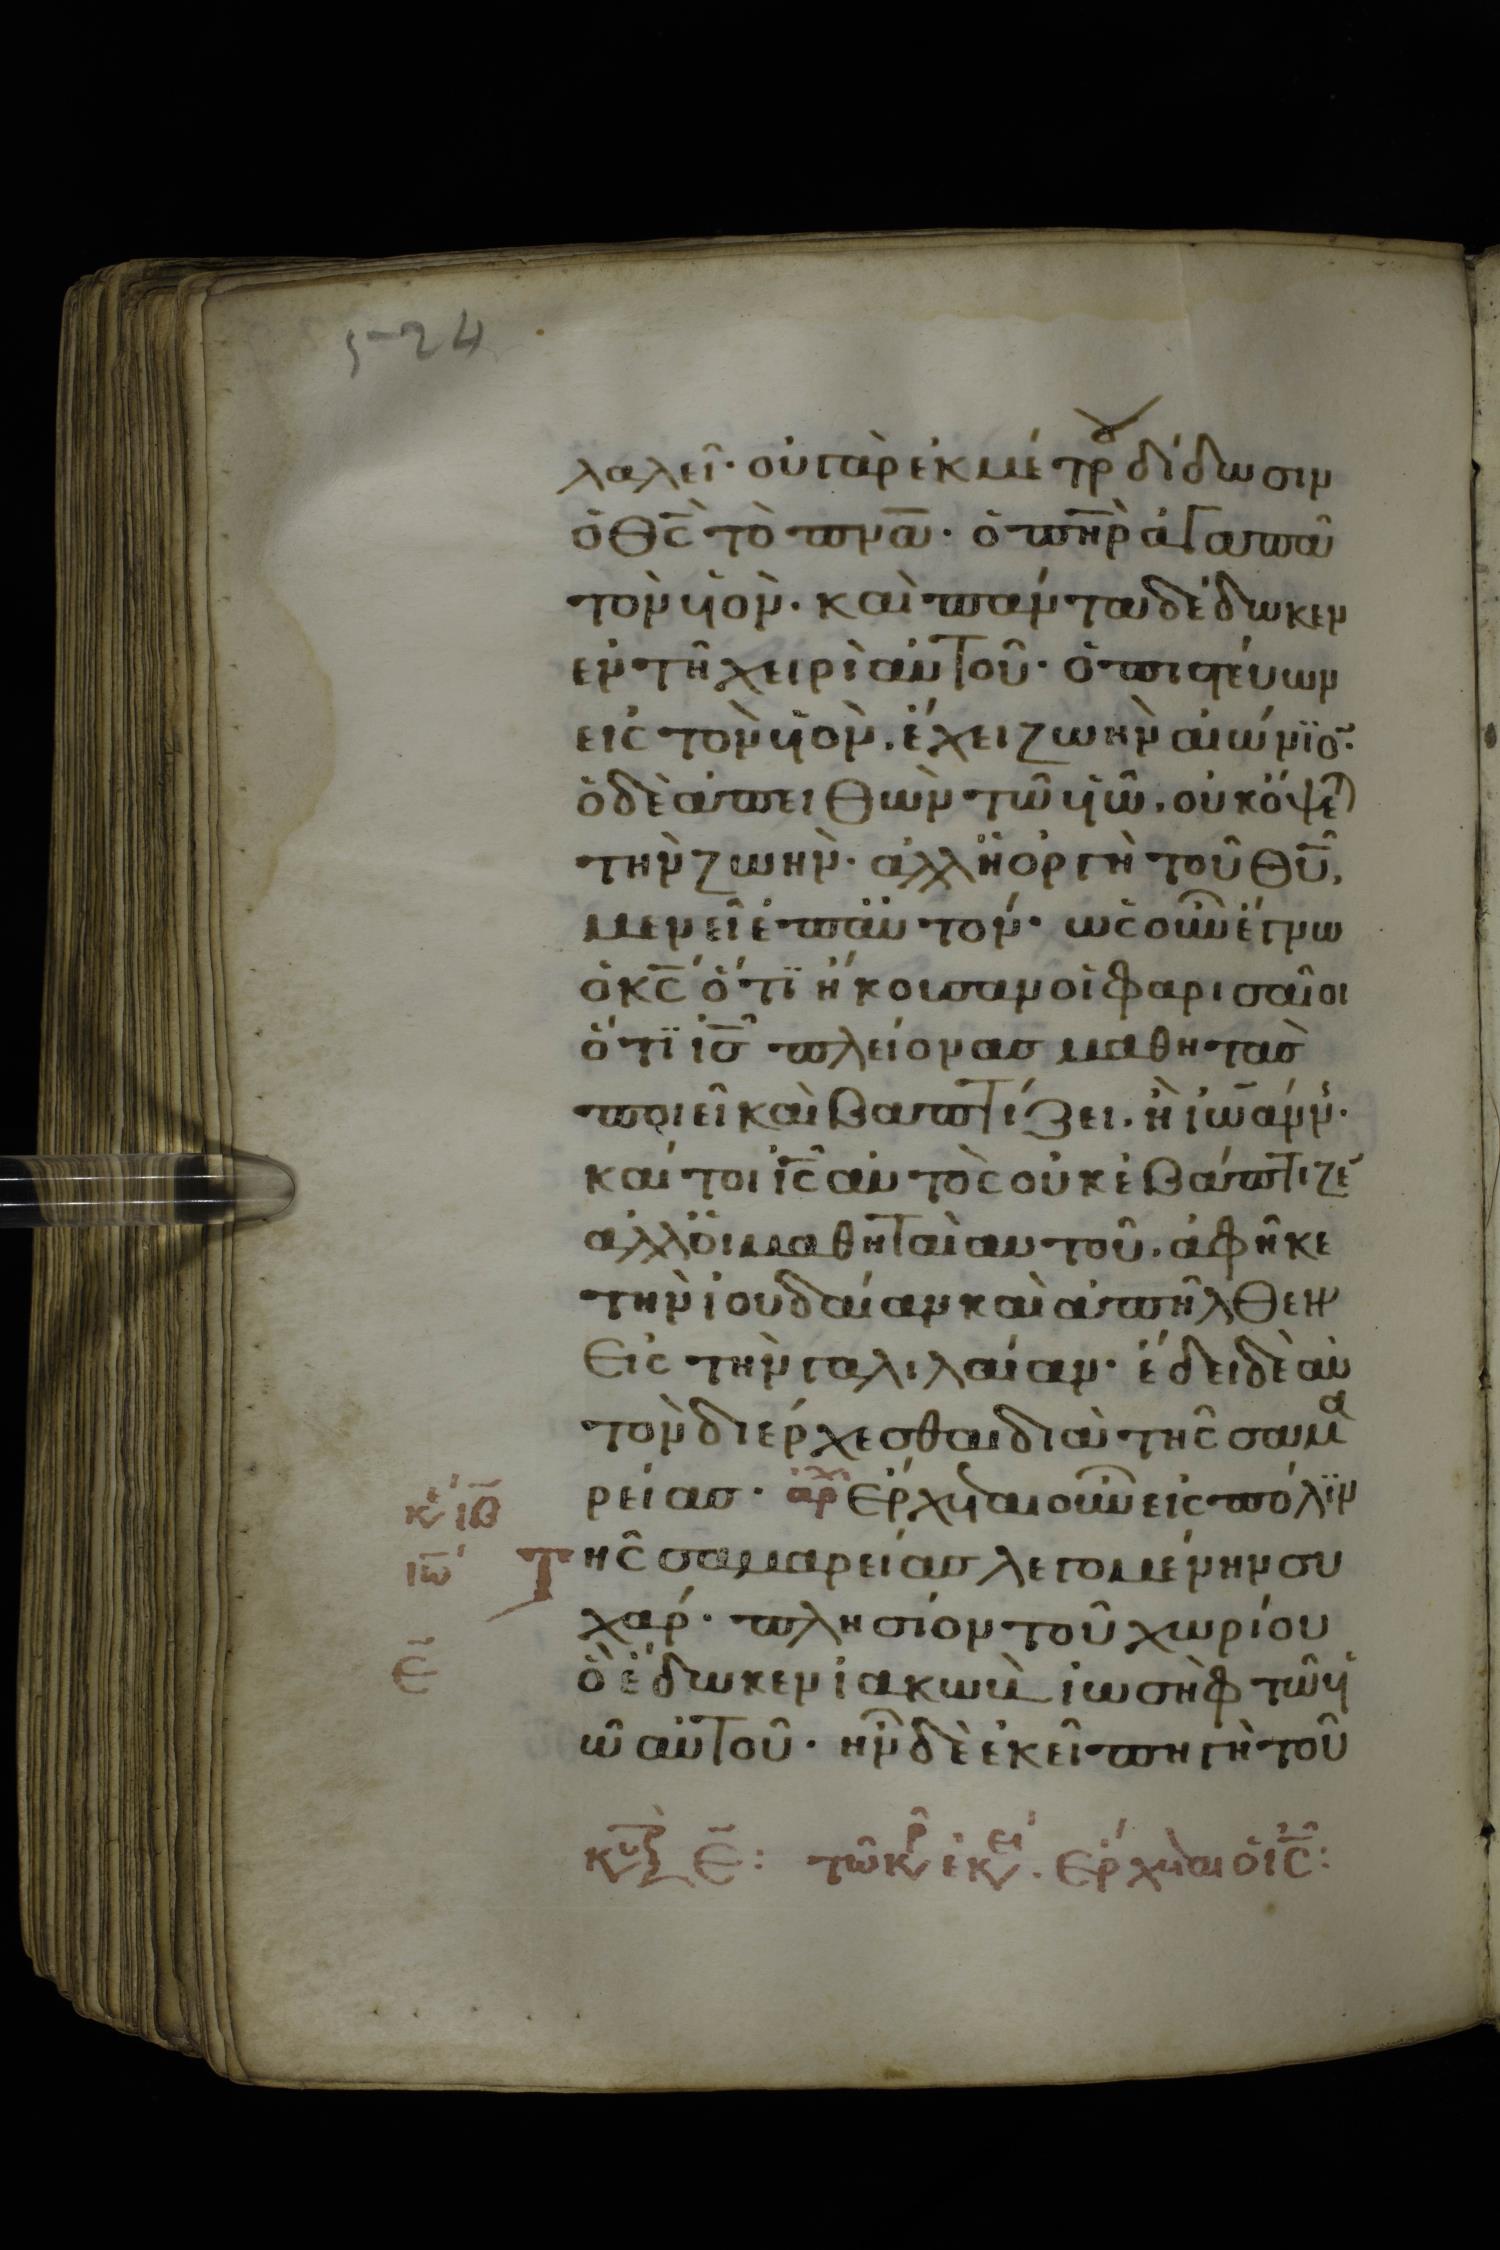 524
λαλεῖ· οὐ γὰρ ἐκ μέτρου δίδωσιν
ὁ θ̅ς̅ τὸ πν̅α̅· ὁ π̅η̅ρ̅ ἀγαπᾶ
τὸν υἱὸν· καὶ πάντα δέδωκεν
ἐν τῆ χειρὶ αὐτοῦ· ὁ πιστεύων
εἰς τὸν υἱὸν, ἔχει ζωὴν αἰώνϊο̅·
ὁ δὲ ἀπειθὼν τῶ υἱῶ, οὐκ ὄψεται
τὴν ζωὴν· ἀλλ' ἡ ὀργὴ τοῦ θ̅υ̅,
μενεῖ ἐπ' αὐτόν· ὡς οὖν ἔγνω
ὁ κ̅ς̅ ὅτϊ ἤκουσαν οἱ φαρισαῖοι
ὅτϊ ι̅σ̅ πλείονας μαθητὰς
ποιεῖ καὶ βαπτίζει, ἢ ἰω̅άνν·
καίτοι ι̅ς̅ αὐτὸς οὐκ ἐβάπτιζε̅
ἀλλ' οἱ μαθηταὶ αυτοῦ, ἀφῆκε
τὴν ἰουδαίαν καὶ ἀπῆλθεν
Εἰς τὴν γαλιλαίαν· ἔδει δὲ αὐ
τὸν διέρχεσθαι διὰ τῆς σαμα
ρείας· ἀρχ Ἔρχεται οὖν εἰς πόλϊν
κε ιβ
ιω Τῆς σαμαρείας λεγομένην συ
χάρ· πλησίον τοῦ χωρίου
ε̅ ὃ ἔδωκεν ἰακὼβ ἰωσὴφ τῶ υἱ
ῶ αὐτοῦ· ἦν δὲ ἐκεῖ πηγὴ τοῦ
κυρ ε̅: τῶ κρ ἐκει. Ἔρχεται ὁ ι̅ς̅: